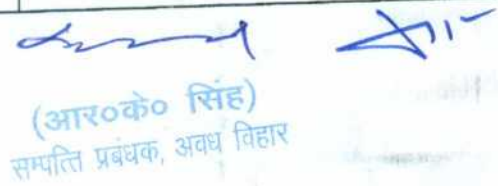 (आर०के० सिंह)
सम्पत्ति प्रबंधक, अवध विहार